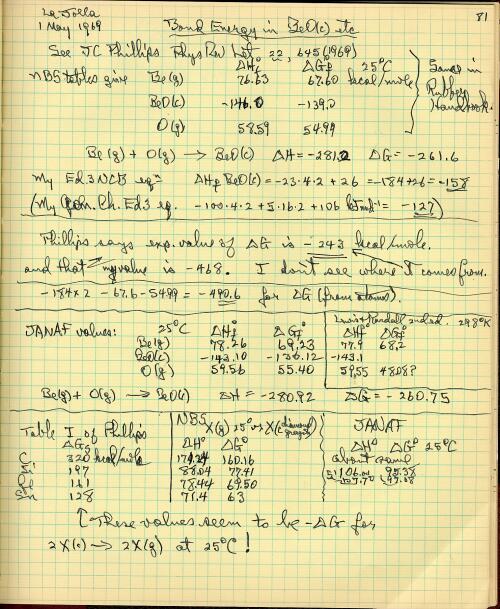 La Jolla
81
1 May 1969
Bond Energy in BeO(c) etc
See JC Phillips Phys Rev Let 22, 645 (1969)
ΔHf° ΔGf° 25°C
NBS tables give Be(g) 76.63 67.60 kcal/mole
Same in Rubber Handbook.
BeO(c) -146.0 -139.0
O(g) 58.59 54.99
Be(g) + O(g) → BeO(c) ΔH = -281.2 ΔG = -261.6
My Ed.3 NCB eqn ΔHf BeO(c) = -23·4·2 + 26 = -184+26 = -158
(My Gen. Ch. Ed3 eq. -100·4·2 + 5·16·2 + 106 = -127)
Phillips says exp. value of ΔG is -243 kcal/mole.
and that my value is -468. I don't see where it comes from.
-184x2 - 67.6 - 54.99 = -490.6 for ΔG (from atoms).
JANAF values: 25°C ΔHf° ΔGf°
Lewis & Randall 2nd ed. 298°K
ΔHf° ΔGf°
Be(g) 78.26 69.23 77.9 68.2
BeO(c) -143.10 -136.12 -143.1
O(g) 59.56 55.40 59.55 48.08?
Be(g) + O(g) → BeO(c) ΔH = -280.92 ΔG = -260.75
Table I of Phillips
NBS X(g) 25° vs X(c diamond
JANAF
ΔG ΔH° ΔG° ΔH° ΔG° 25°C
C 320 kcal/mole 171.24 160.16 about same
Si 197 88.04 77.41 Si 106.01 95.38
Ge 161 78.44 69.50
Sn 128 71.4 63
↑ These values seem to be -ΔG for
2X(c) → 2X(g) at 25°C!